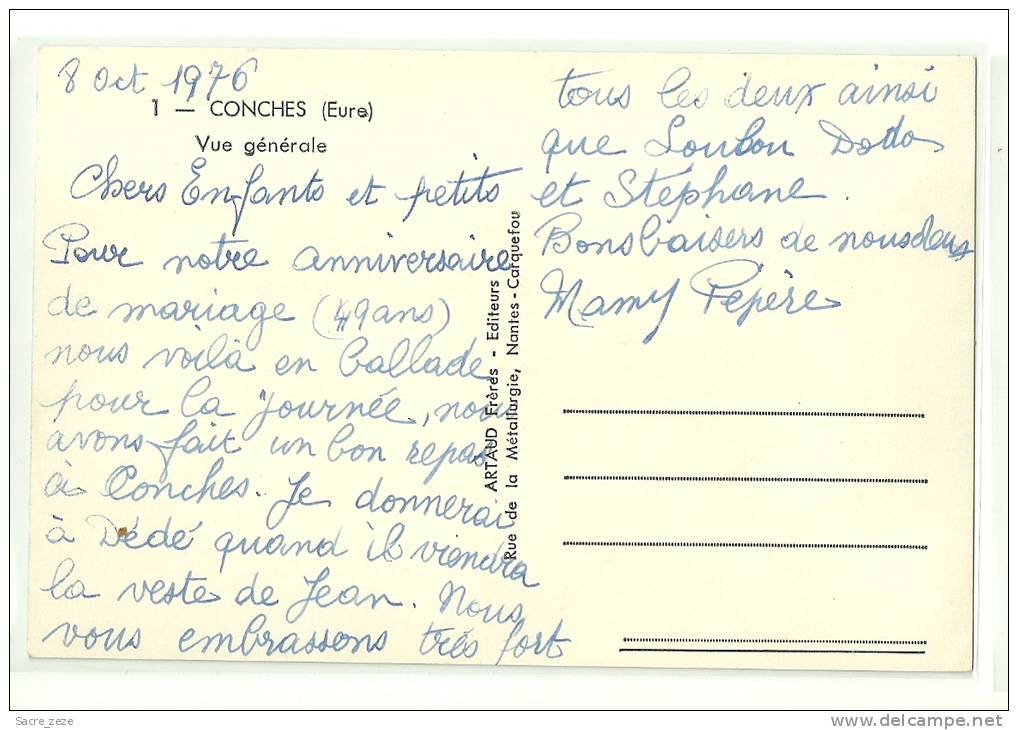 8 Oct 1976
1 — CONCHES (Eure)
Vue générale
Chers Enfants et petits
Pour notre anniversaire
de mariage (49 ans)
nous voilà en ballade
pour la journée, nous
avons fait un bon repas
à Conches. Je donnerai
à Dédé quand il viendra
la veste de Jean. Nous
vous embrassons très fort
tous les deux ainsi
que Loulou Dodo
et Stéphane.
Bons baisers de nous deux
Mamy Pépère
ARTAUD Frères - Editeurs
Rue de la Métallurgie, Nantes-Carquefou
Sacre_zeze
http://www.delcampe.net